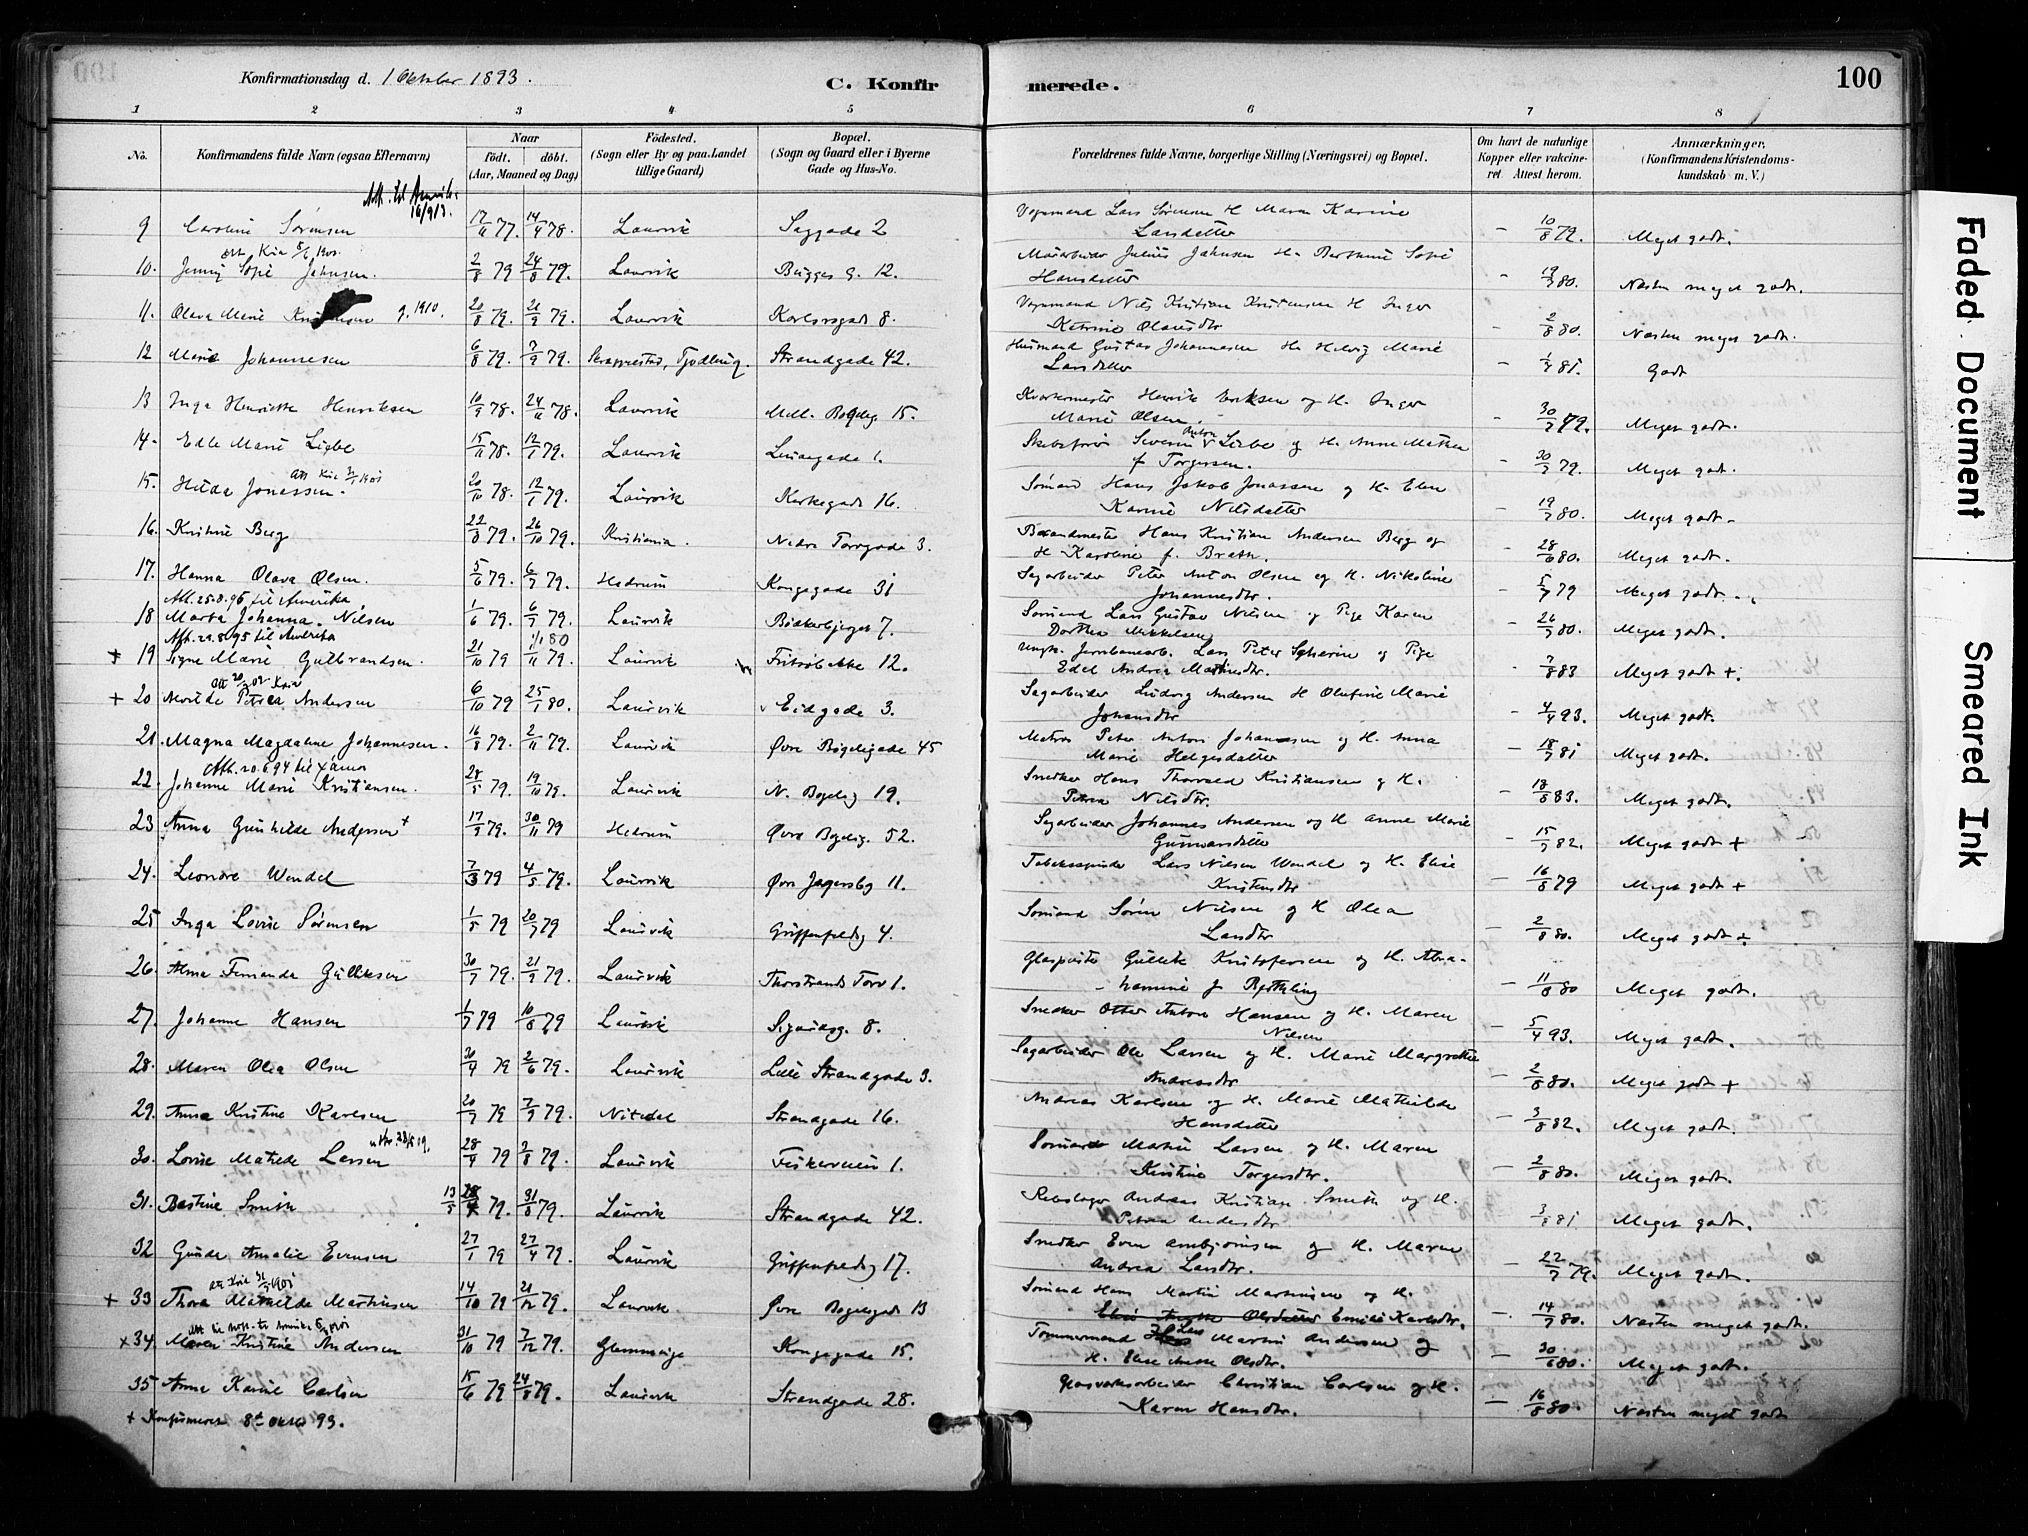 Konfirmationsdag d. 1 Oktober 1893.
C. Konfir
merede.
100
1 2 3 4 5 6 7 8
No.
Konfirmandens fulde Navn (ogsaa Efternavn)
Naar
födt. döbt.
(Aar, Maaned og Dag)
Födested.
(Sogn eller By og paa Landet
tillige Gaard)
Bopæl.
(Sogn og Gaard eller i Byerne
Gade og Hus-No.
Forældrenes fulde Navne, borgerlige Stilling (Næringsvei) og Bopæl.
Om havt de naturlige
Kopper eller vakcine-
ret. Attest herom.
Anmærkninger.
(Konfirmandens Kristendoms-
kundskab m. V.)
16/9 13.
9 Caroline Sørensen 17/11 77. 14/4 78. Laurvik Saggade 2 Vognmand Lars Sørensen H Maren Karine - 10/8 79. Meget godt.
Larsdatter
att Kria 1901
10. Jenny Sofie Johnsen. 2/8 79 24/8 79. Laurvik Brügges g. 12. Julius Johnsen H. Sofie - 19/3 80. Næsten meget godt.
Hansdatter
11. Olava Marie g. 1910. 20/8 79. 21/9 79. Laurvik Karlsrogade 8. Vognmand Nils Kristian Kristensen H Inger - 2/8 80. Næsten meget godt.
Katrine Olausdtr
12 Marie Johannesen 6/8 79. 7/9 79. Tjodling. Strandgade 42. Husmand Gustav Johannesen H. Helvig Marie - 1/9 81. Godt
Larsdatter
13 Inga Henriette Henriksen 10/9 78. 24/11 78. Laurvik Mell. Bøgeleg. 15. Henrik Eriksen og H. Inger - 30/7 79. Meget godt.
Marie Olsen
14. Edle Marie Liebe 15/11 78. 12/1 79. Laurvik Lindegade 1. Skibsfører Severin Anton Liebe og H. Anne Mathea - 30/7 79. Meget godt.
f Torgersen.
att Kria 1901
15. Hilda Jonassen. 20/10 78. 12/1 79. Laurvik Kirkegade 16. Sømand Hans Jakob Jonassen og H. Elen - 19/7 80. Meget godt.
Karine Nilsdatter
16. Kristine Berg 22/8 79. 26/10 79. Kristiania. Nedre Torvgade 3. Brandmester Hans Kristian Andersen Berg og - 28/6 80. Meget godt.
H Karoline f. Brath.
17. Hanna Olava Olsen. 5/6 79. 6/7 79. Hedrum Kongegade 31 Sagarbeider Peter Anton Olsen og H. Nikoline - 5/7 79 Meget godt.
Johannesdtr.
Afh. 25.8.96 til Amerika
18 Marta Johanna Nilsen 1/6 79. 6/7 79. Laurvik Bøkkerbjerget 7. Sømand Lars Gustav Nilsen og Pige Karen - 26/7 80. Meget godt.
Dorthea Mikkelsen
Afh. 29.8.95 til Amerika 1/1 80
+ 19 Signe Marie Gulbrandsen. 21/10 79 /11 79. Laurvik Fritsøbakke 12. Ungk. Jernbanearb. Lars Peter og Pige - 7/8 83 Meget godt +.
Edel Andrea Martinsdtr.
att 02 Kria
+ 20 Alvilde Petrea Andersen 6/10 79 25/1 80. Laurvik Eidgade 3. Sagarbeider Ludvig Andersen H Olufine Marie - 4/4 93. Meget godt.
Johansdtr
21. Magna Magdalene Johannesen. 16/8 79. 2/11 79. Laurvik Øvre Bøgeligade 45 Matros Peter Anton Johannesen og H. Anna - 18/7 81 Meget godt.
Marie Helgesdatter
Afh. 20.6.94 til
22. Johanne Marie Kristiansen. 28/5 79. 19/10 79. Laurvik N. Bøgelig 19. Snedker Hans Thorvald Kristiansen og H. - 18/8 83. Meget godt.
Petrea Nilsdtr.
23 Anna Gunhilde Andersen + 17/9 79. 30/11 79 Hedrum Øvre Bøgelig. 52. Sagarbeider Johannes Andersen og H Anne Marie - 15/7 82. Meget godt +
Gunnarsdatter
24. Leonore Wendel 7/3 79 4/5 79. Laurvik Øvre Jegersbg 11. Lars Nilsen Wendel og H. Elise - 16/8 79 Meget godt +
Kristensdtr
25 Inga Lovise Sørensen 1/5 79 20/7 79 Laurvik Griffenfeldtg 4. Sømand Søren Nilsen og H Olea - 2/8 80. Meget godt +
Larsdtr
26. Alma Fernanda Gulliksen 30/7 79. 21/9 79. Laurvik Thorstrands Torv 1. Glaspuster Gullik Kristofersen og H. Abra- - 11/8 80 Meget godt.
-hamine f
27. Johanne Hansen 1/7 79 10/8 79 Laurvik Sigurdsg. 8. Snedker Otter Anton Hansen og H. Maren - 5/4 93. Meget godt.
Nilsen
28. Maren Olea Olsen 30/4 79 2/6 79. Laurvik Lille Strandgade 3. Sagarbeider Ole Larsen og H. Marie Margrethe - 2/8 80. Meget godt +
Andreasdtr
29. Anna Kristine Karlsen 20/7 79 7/9 79. Nitedal Strandgade 16. Andreas Karlsen og H. Marie Mathilde - 3/8 82. Meget godt.
Hansdatter
30. Lovise Matilde Larsen 28/4 79 3/8 79. Laurvik Fiskerveien 1. Sømand Martin Larsen og H. Maren - 2/8 80. Meget godt.
Kristine Torgersdtr.
31. Bastine Smith 13/5 79. 31/8 79. Laurvik Strandgade 42. Rebslager Andreas Kristian Smith og H. - 3/8 81 Meget godt.
Petrea Andersdtr
32 Gunda Amalie Evensen 27/1 79 27/4 79. Laurvik Griffenfeldtg 17. Snedker Even Arnbjørnsen og H. Maren - 22/7 79. Meget godt.
Andrea Larsdtr.
att Kria 1901
+ 33 Thora Mathilde Martinsen 14/10 79 21/12 79. Laurvik. Øvre Bøgeligade 13 Sømand Hans Martin Martinsen og H. - 14/7 80. Næsten meget godt.
Olesdatter Emilie Karlsdtr.
+ 34 Maren Kristine Andersen 31/10 79 7/12 79. Glemminge Kongegade 15. Tømmermand Lars Martin Andersen og - 30/6 80. Meget godt.
H. Elise Anette Olsdtr.
35 Anna Karine Carlsen 15/6 79 24/8 79. Laurvik Strandgade 28. Glasværksarbeider Christian Carlsen og H. - 16/8 80. Næsten meget godt
Karen Hansdtr.
+ Konfirmeret 8de Oktbr 93.
Faded Document
Smeared Ink